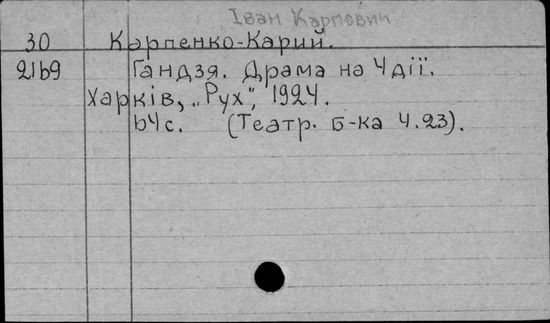 Іван Карпович
30 Карпенко-Карий.
2169 Гандзя. Драма на 4 дії.
Харків, „Рух", 1924.
64 с. (Театр. Б-ка Ч.23).